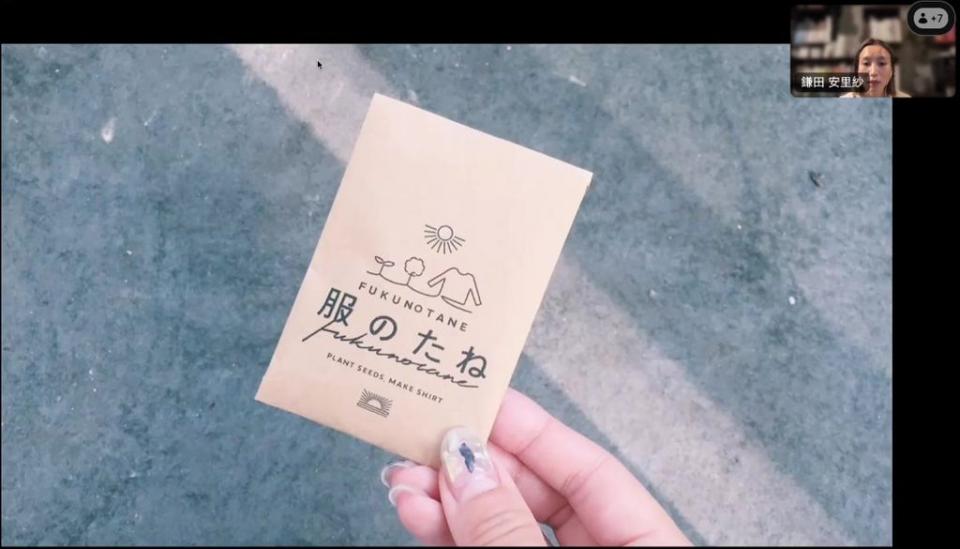 +7
鎌田 安里紗
FUKUNOTANE
服のたね
fukunotane
PLANT SEEDS, MAKE SHIRT